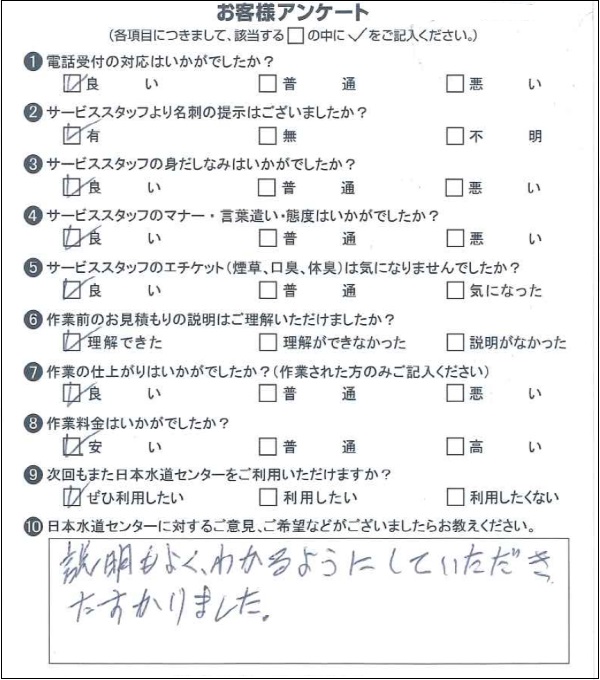 お客様アンケート
(各項目につきまして、該当する□の中に✓をご記入ください。)
❶ 電話受付の対応はいかがでしたか?
☑良 い □普 通 □悪 い
❷ サービススタッフより名刺の提示はございましたか?
☑有 □無 □不 明
❸ サービススタッフの身だしなみはいかがでしたか?
☑良 い □普 通 □悪 い
❹ サービススタッフのマナー・言葉遣い・態度はいかがでしたか?
☑良 い □普 通 □悪 い
❺ サービススタッフのエチケット(煙草、口臭、体臭)は気になりませんでしたか?
☑良 い □普 通 □気になった
❻ 作業前のお見積もりの説明はご理解いただけましたか?
☑理解できた □理解ができなかった □説明がなかった
❼ 作業の仕上がりはいかがでしたか?(作業された方のみご記入ください)
☑良 い □普 通 □悪 い
❽ 作業料金はいかがでしたか?
☑安 い □普 通 □高 い
❾ 次回もまた日本水道センターをご利用いただけますか?
☑ぜひ利用したい □利用したい □利用したくない
❿ 日本水道センターに対するご意見、ご希望などがございましたらお教えください。
説明もよく、わかるようにしていただき
たすかりました。